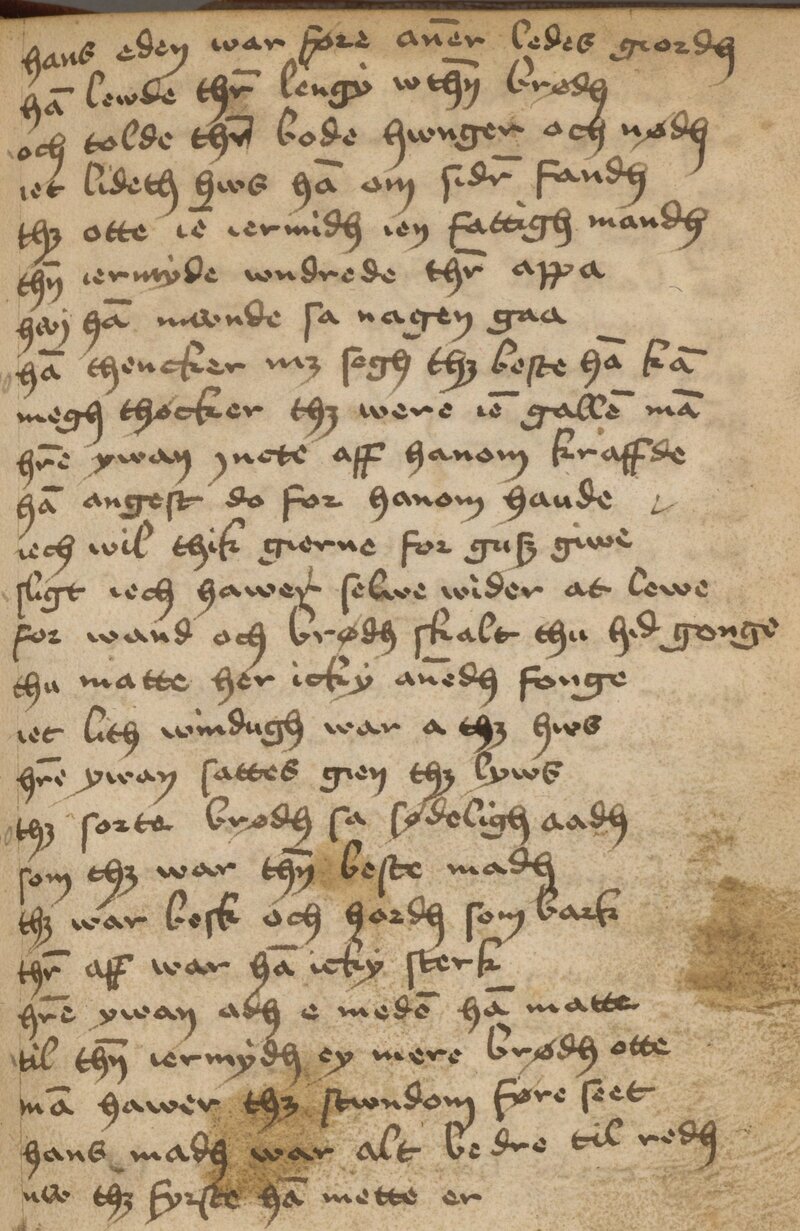 hans eden war føre an̄er ledes giordh
hā lewde thr̄ lengy wthn̄ brødh
och tolde thr̄ bode hwnger och nødh
iet lideth hws hā om sidr̄ fandh
thꝫ otte iē iermidh ien fattigh mandh
thn̄ iermyde wndrede thr̄ appa
hwj hā mwnde sa nagen gaa
hā thencker mꝫ segh thꝫ beste hā kā
megh thøcker thꝫ were iē gallē mā
hr̄e ywan jncte aff hanom kraffde
hā angest do for hanom haude
iech wil thik gierne for gutz giwe
sligt iech hawer selwe wider at lewe
for wand och brødh skalt thu hid gonge
thu matte her icky an̄edh fonge
iet lith windugh war a thꝫ hws
hr̄e ywan sattes gien thꝫ lyws
thꝫ sorte brødh sa sødeligh aadh
som thꝫ war thn̄ beste madh
thꝫ war besk och hordh som bark
thr̄ aff war hā icky sterk
hr̄e ywan adh e medē hā matte
til thn̄ iermydh ey mere brødh otte
mā hawer thꝫ stwndom føre seet
hans madh war alt bedre til redh
nw thꝫ fyrste hā mette er